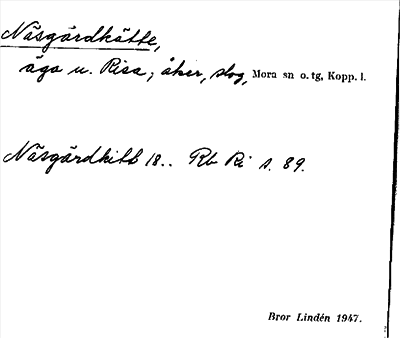 Näsgärdkätte,
äga u. Risa; åker, slog, Mora sn o. tg, Kopp. l.
Näsgärdkitt 18.. Rb Ri s. 89.
Bror Lindén 1947.